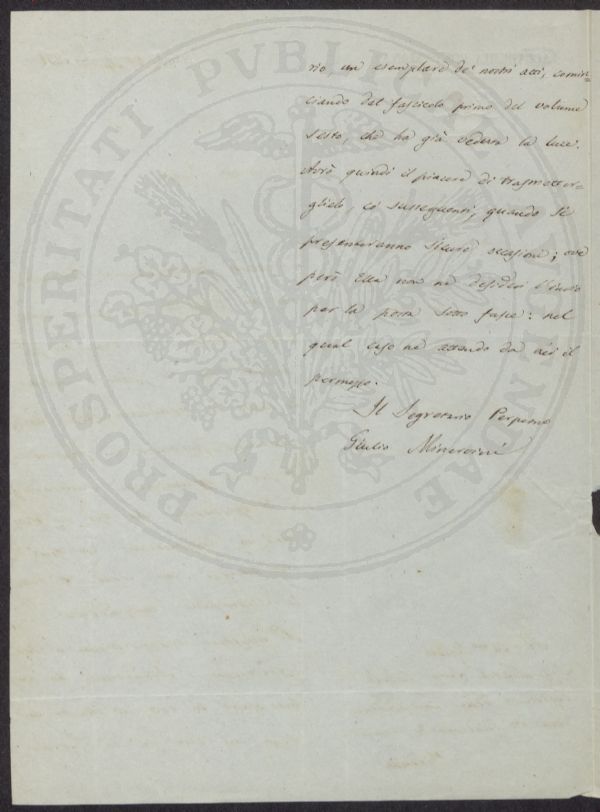 PROSPERITATI PUBLICAE AUGENDAE
rio, un esemplare de' nostri atti, comin=
ciando dal fascicolo primo del volume
sesto, che ha già veduta la luce.
Avrò quindi il piacere di trasmetter=
glielo, co' susseguenti, quando si
presenteranno sicure occasioni; ove
però Ella non ne desideri l'invio
per la posta sotto fascie: nel
qual caso ne attendo da Lei il
permesso.
Il Segretario Perpetuo
Giulio Minervini